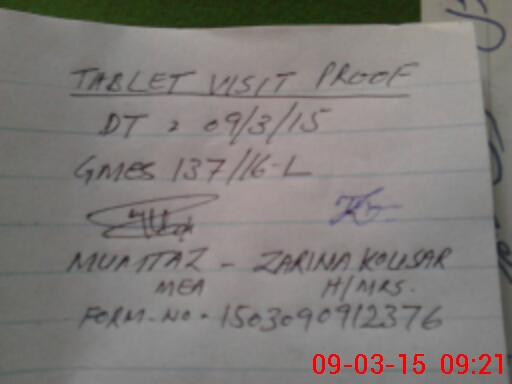 TABLET VISIT PROOF
DT : 09/3/15
GMES 137/16-L
MUMTAZ - ZARINA KOUSAR
MEA H/MRS.
FORM-NO. 1503090912376
09-03-15 09:21